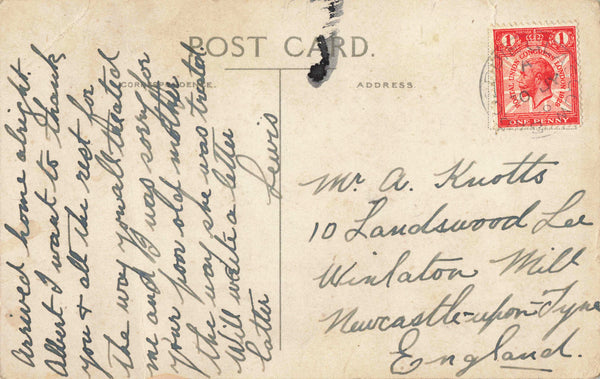 POST CARD.
CORRESPONDENCE.
ADDRESS.
Arrived home alright.
Albert I want to thank
you & all the rest for
the way you all treated
me and B was sorry for
your poor old mother
the way she was treated
Will write a letter
latter
Lewis
1 1
POSTAL UNION CONGRESS LONDON 1929
ONE PENNY
Mr A. Knotts
10 Landswood Lee
Winlaton Mill
Newcastle-upon-Tyne
England.